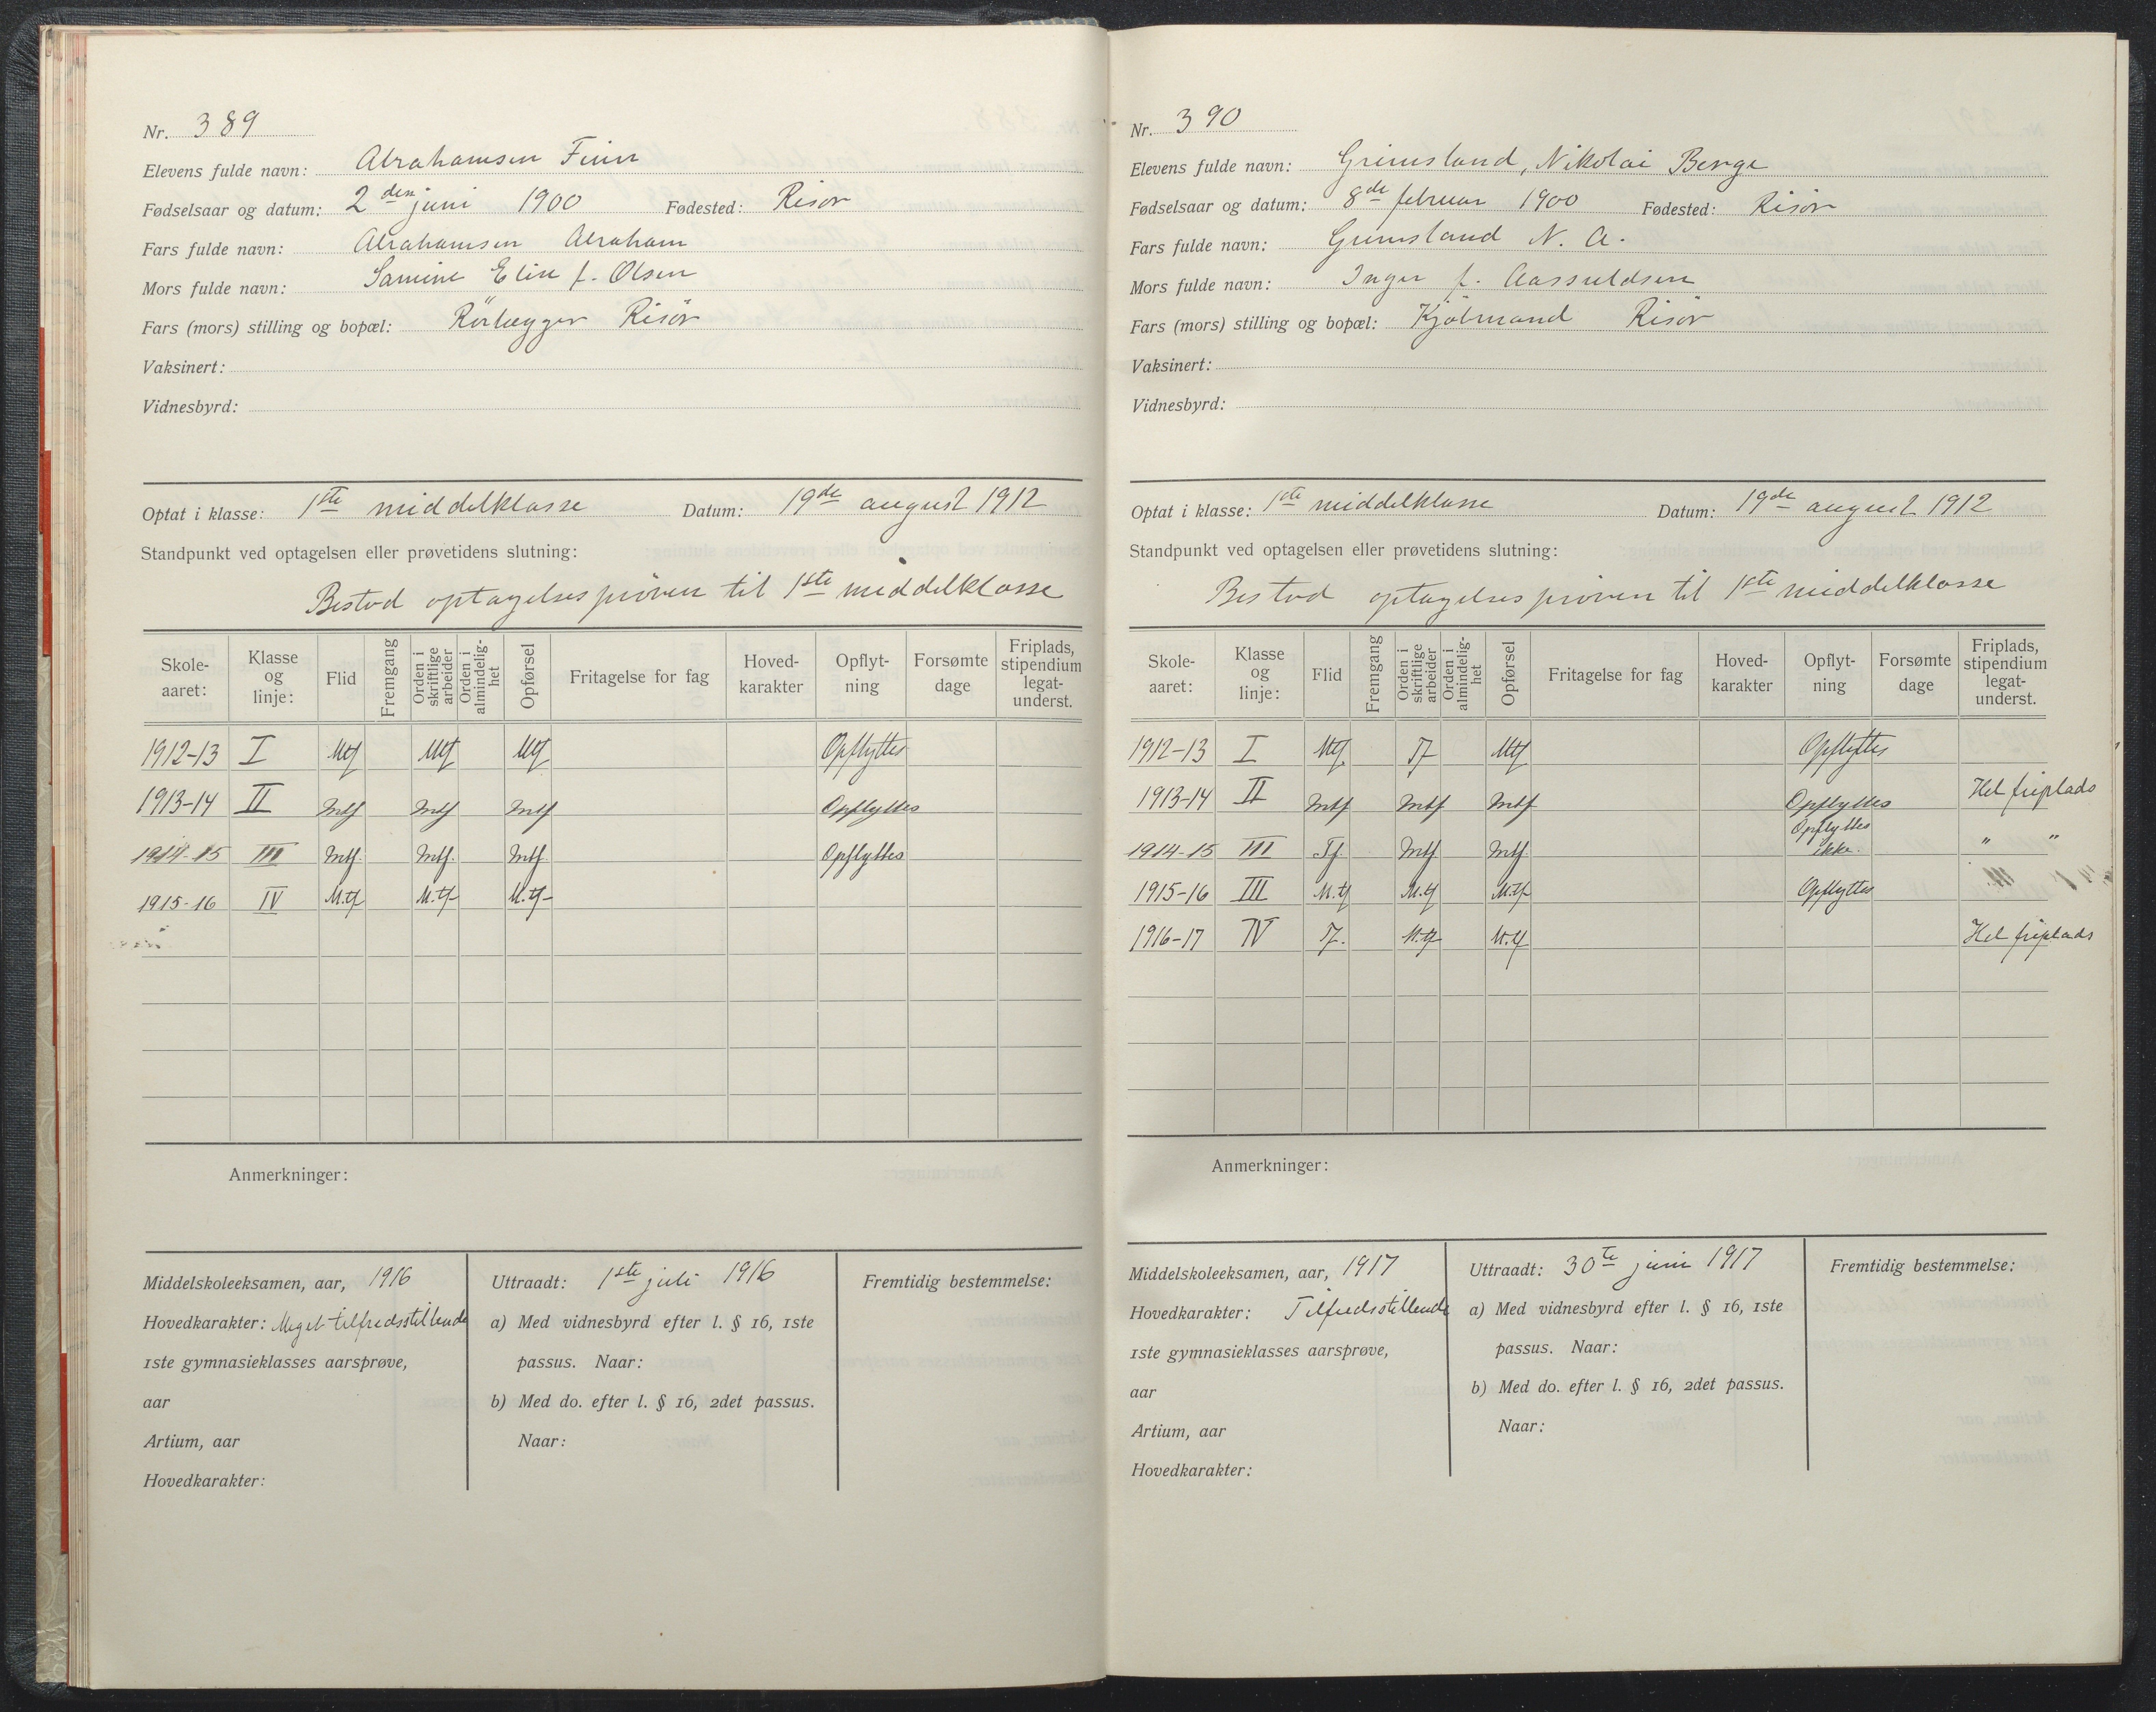 Nr. 389
Elevens fulde navn: Abrahamsen Finn
Fødselsaar og datum: 2den juni 1900 Fødested: Risør
Fars fulde navn: Abrahamsen Abraham
Mors fulde navn: Samine Elise f. Olsen
Fars (mors) stilling og bopæl: Rörlægger Risör
Vaksinert:
Vidnesbyrd:
Optat i klasse: 1ste middelklasse Datum: 19de august 1912
Standpunkt ved optagelsen eller prøvetidens slutning:
Bestod optagelsesprøven til 1ste middelklasse
Skole-aaret: Klasse og linje: Flid Fremgang Orden i skriftlige arbeider Orden i almindelig-het Opførsel Fritagelse for fag Hoved-karakter Opflyt-ning Forsømte dage Friplads, stipendium legat-underst.
1912-13 I Mtf Mtf Mtf Opflyttes
1913-14 II Mtf Mtf Mtf Opflyttes
1914-15 III Mtf. Mtf. Mtf. Opflyttes
1915-16 IV M.tf M.tf M.tf
Anmerkninger:
Middelskoleeksamen, aar, 1916
Hovedkarakter: Meget tilfredsstillende
1ste gymnasieklasses aarsprøve,
aar
Artium, aar
Hovedkarakter:
Uttraadt: 1ste juli 1916
a) Med vidnesbyrd efter l. § 16, 1ste
passus. Naar:
b) Med do. efter l. § 16, 2det passus.
Naar:
Fremtidig bestemmelse:
Nr. 390
Elevens fulde navn: Grimsland, Nikolai Berge
Fødselsaar og datum: 8de februar 1900 Fødested: Risör
Fars fulde navn: Grimsland N. A.
Mors fulde navn: Inger f.
Fars (mors) stilling og bopæl: Kjöbmand Risör
Vaksinert:
Vidnesbyrd:
Optat i klasse: 1ste middelklasse Datum: 19de august 1912
Standpunkt ved optagelsen eller prøvetidens slutning:
Bestod optagelsesprøven til 1ste middelklasse
Skole-aaret: Klasse og linje: Flid Fremgang Orden i skriftlige arbeider Orden i almindelig-het Opførsel Fritagelse for fag Hoved-karakter Opflyt-ning Forsømte dage Friplads, stipendium legat-underst.
1912-13 I Mtf. Tf Mtf Opflyttes
1913-14 II Mtf Mtf Mtf Opflyttes Hel friplads
1914-15 III Tf. Mtf. Mtf. Opflyttes ikke. " "
1915-16 III M.tf M.tf M.tf Opflyttes
1916-17 IV Tf. M.tf M.tf Hel friplads
Anmerkninger:
Middelskoleeksamen, aar, 1917
Hovedkarakter: Tilfredsstillende
1ste gymnasieklasses aarsprøve,
aar
Artium, aar
Hovedkarakter:
Uttraadt: 30te juni 1917
a) Med vidnesbyrd efter l. § 16, 1ste
passus. Naar:
b) Med do. efter l. § 16, 2det passus.
Naar:
Fremtidig bestemmelse: